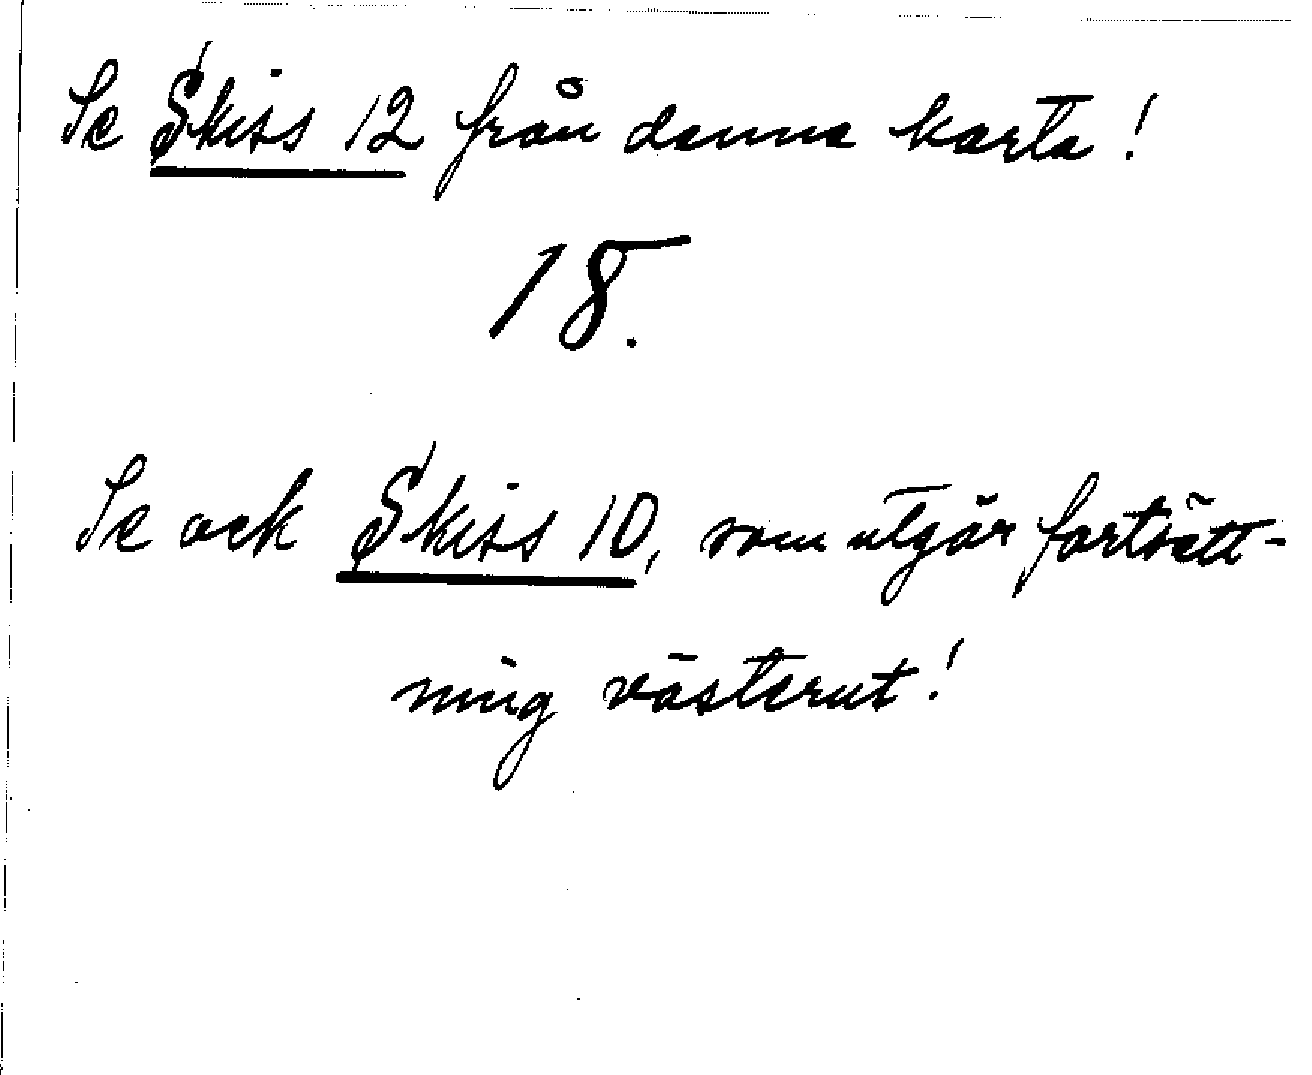 Se Skiss 12 från denna karta!
18.
Se ock Skiss 10, som utgör fortsätt-
ning västerut!